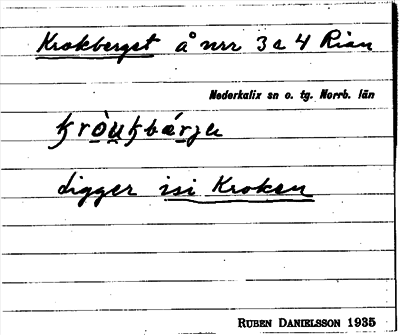 Krokberget å nrr 3 a 4 Rian
Nederkalix sn o. tg. Norrb. län
ligger isi Kroken
RUBEN DANIELSSON 1935